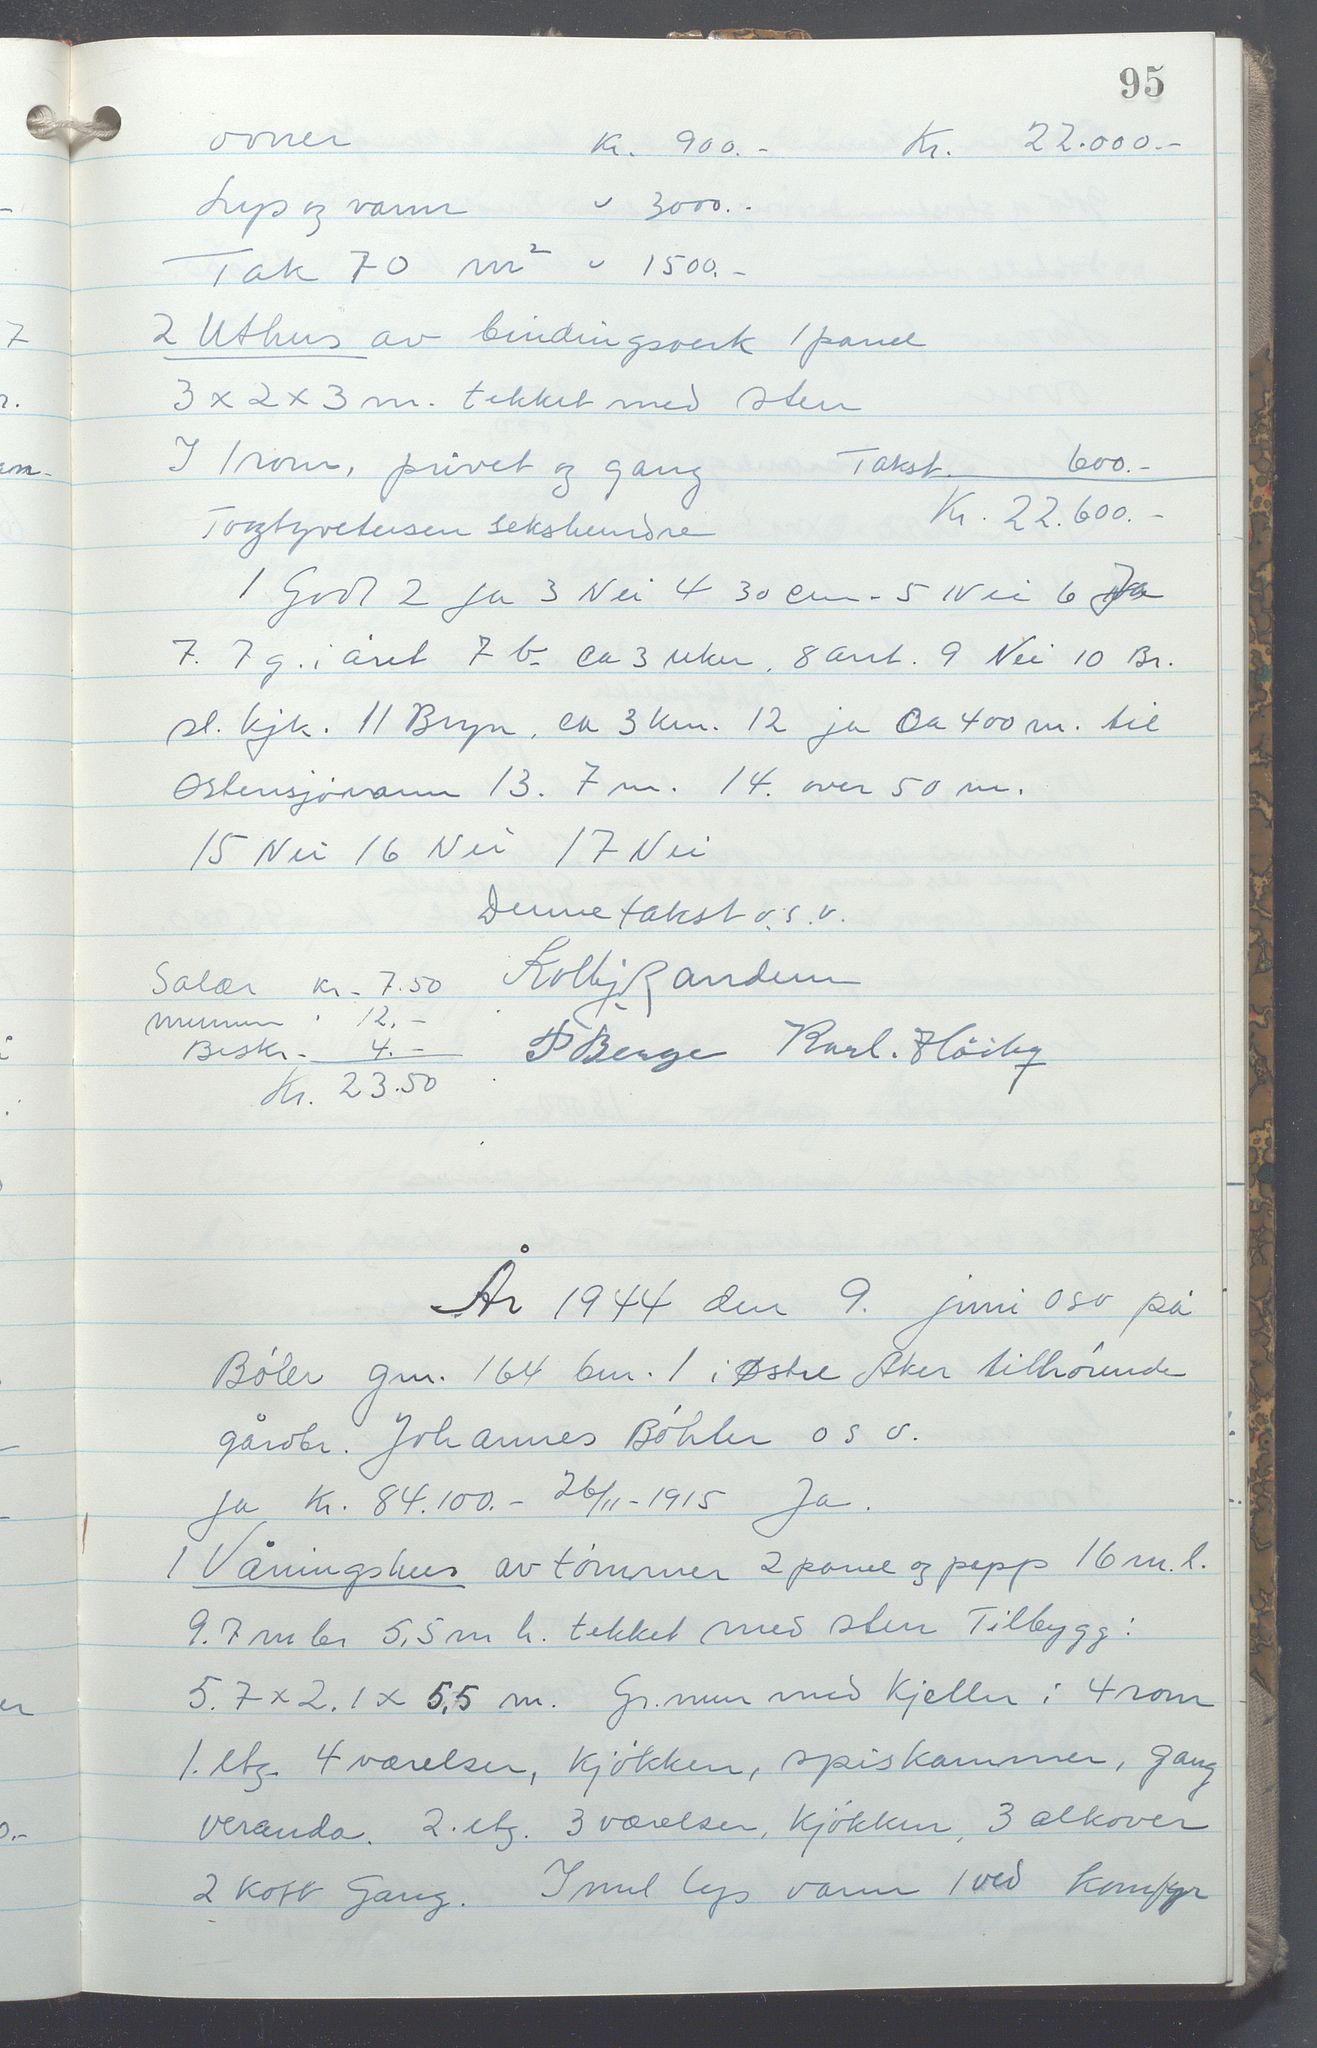 95
ovner Kr. 900.- Kr. 22.000.-
Lys og vann " 3000.-
Tak 70 m² " 1500.-
2 Uthus av bindingsverk 1 panel
3 x 2 x 3 m. tekket med sten
I 1 rom, privet og gang Takst 600.-
Toogtyvetusen sekshundre Kr. 22.600.-
1 Godt 2 ja 3 Nei 4 30 cm - 5 Nei 6 Ja
7. 7 g. i året 7 b- ca 3 uker. 8 ant. 9 Nei 10 Br.
sl. kjk. 11 Bryn, ca 3 km. 12 ja Ca 400 m. til
Østensjøvann 13. 7 m. 14. over 50 m.
15 Nei 16 Nei 17 Nei
Denne takst o.s.v.
Salær Kr. 7.50 Kolbj. Randem
12.-
Beskr. 4.- P Berge Karl. Høiby
Kr. 23.50
År 1944 den 9. juni osv på
Bøler gnr. 164 bnr. 1 i Østre Aker tilhørende
gårdbr. Johannes Bøhler o s v.
ja Kr. 84.100.- 26/11-1915 Ja.
1 Våningshus av tømmer 2 panel og papp 16 m. l.
9.7 m br 5,5 m h. tekket med sten Tilbygg:
5.7 x 2.1 x 5,5 m. Gr.mur med Kjeller i 4 rom
1. etg. 4 værelser, Kjøkken, spiskammer, gang
veranda. 2. etg. 3 værelser, Kjøkken, 3 alkover
2 Kott Gang. Innl lys vann 1 ved komfyr